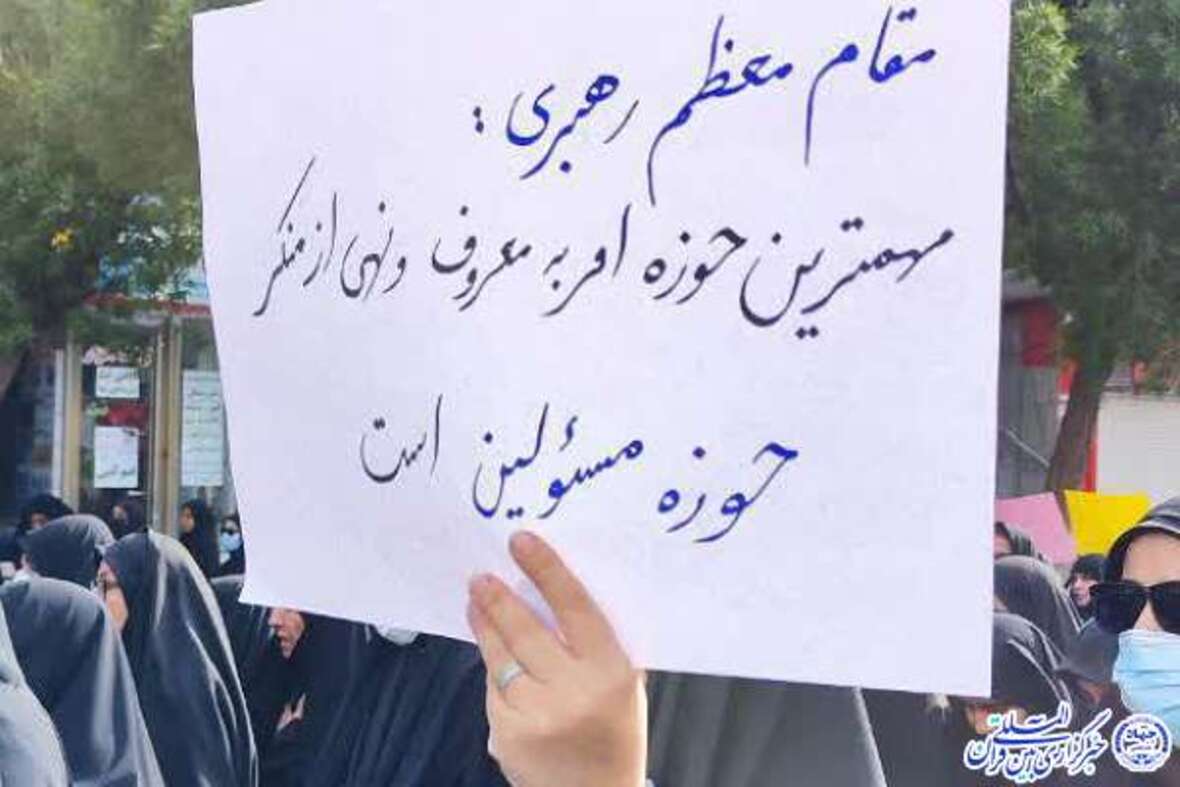 مقام معظم رهبری :
مهمترین حوزه امر به معروف و نهی از منکر
حوزه مسئولین است
خبرگزاری بین المللی قرآن